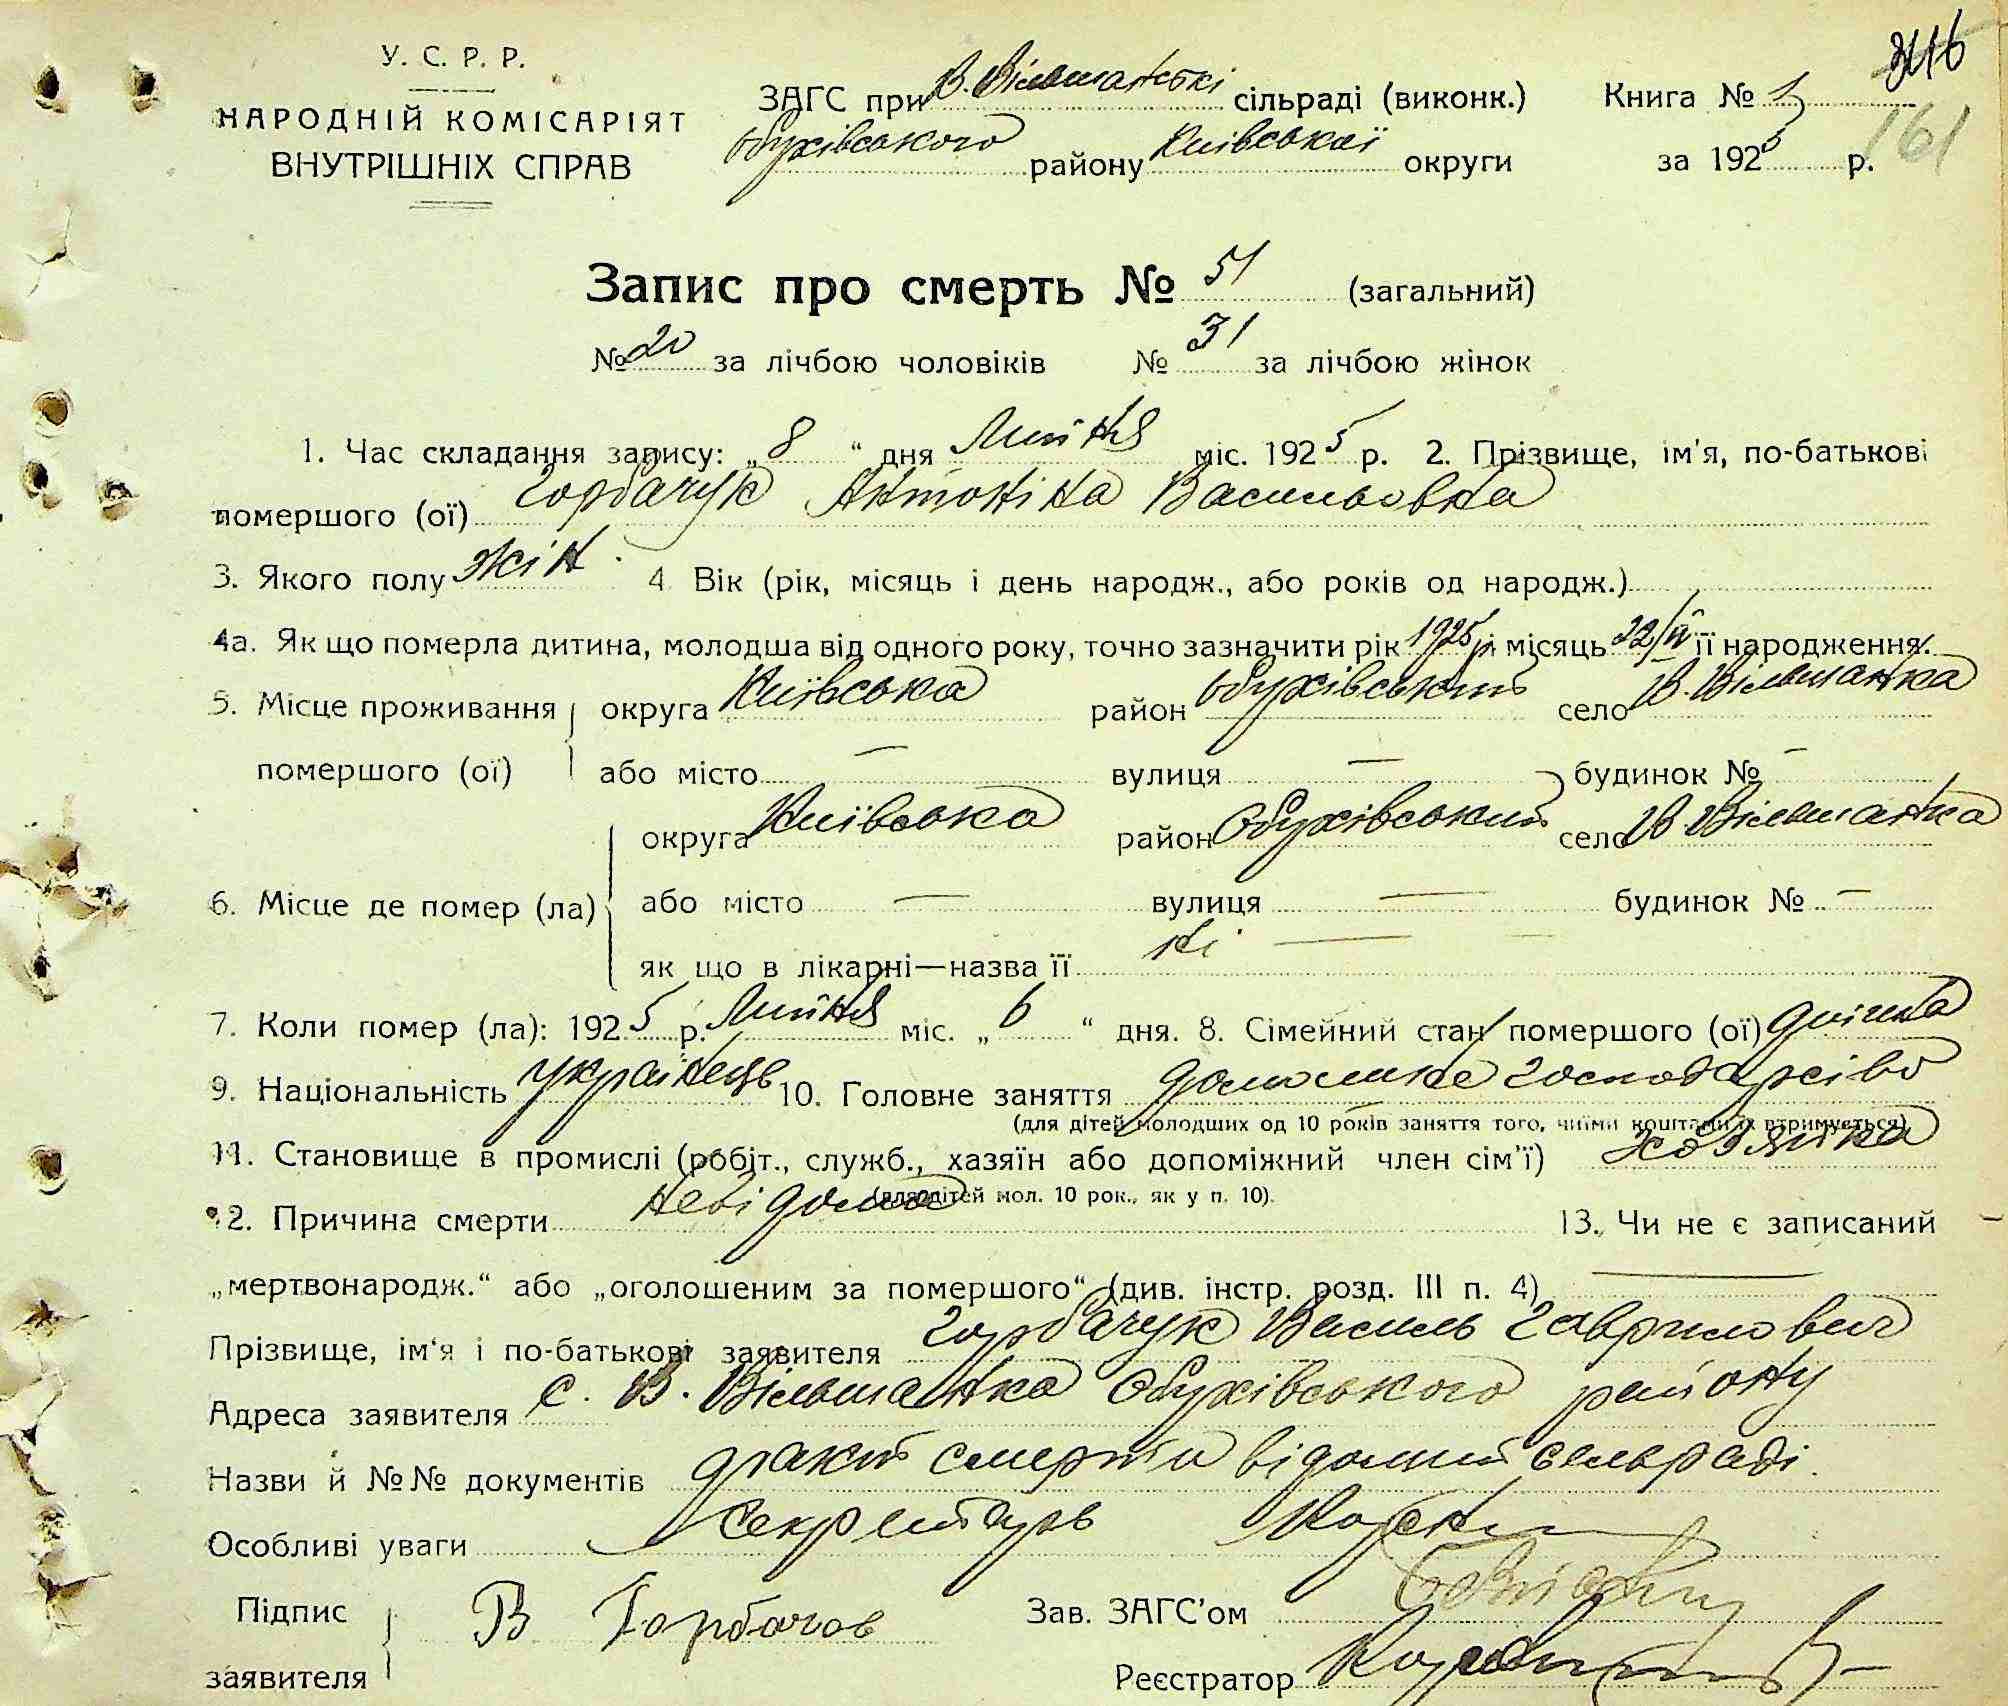 У. С. Р. Р.
НАРОДНІЙ КОМІСАРІЯТ
ВНУТРІШНІХ СПРАВ
ЗАГС при В. Вільшанські сільраді (виконк.)
Обухівського району Київської округи
Книга №
за 1925 р.
161
Запис про смерть № 51 (загальний)
№ 20 за лічбою чоловіків № 31 за лічбою жінок
1. Час складання запису: „8“ дня Липня міс. 1925 р. 2. Прізвище, ім'я, по-батькові
помершого (ої) Горбачук Антоніна Васильовна
3. Якого полу жін. 4 Вік (рік, місяць і день народж., або років од народж.)
4а. Як що померла дитина, молодша від одного року, точно зазначити рік 1925 р і місяць 22/IV її народження.
5. Місце проживання округа Київська район Обухівський село В. Вільшанка
помершого (ої) або місто — вулиця — будинок № —
округа Київська район Обухівський село В Вільшанка
6. Місце де помер (ла) або місто — вулиця — будинок № —
як що в лікарні—назва її ні —
7. Коли помер (ла): 1925 р. Липня міс. „6“ дня. 8. Сімейний стан помершого (ої) дівчина
9. Національність українець 10. Головне заняття домашнє господарсіво
(для дітей молодших од 10 років заняття того, чиїми коштами їх втримується)
11. Становище в промислі (робіт., служб., хазяїн або допоміжний член сім'ї) хозяйка
(для дітей мол. 10 рок., як у п. 10).
12. Причина смерти невідома 13. Чи не є записаний
„мертвонародж.“ або „оголошеним за помершого“ (див. інстр. розд. III п. 4) —
Прізвище, ім'я і по-батькові заявителя Горбачук Василь Гаврилович
Адреса заявителя с. В. Вільшанка Обухівського району
Назви й №№ документів факт смерти відомий сельраді.
Особливі уваги Секретарь
Підпис
заявителя В Горбачов
Зав. ЗАГС'ом
Реєстратор